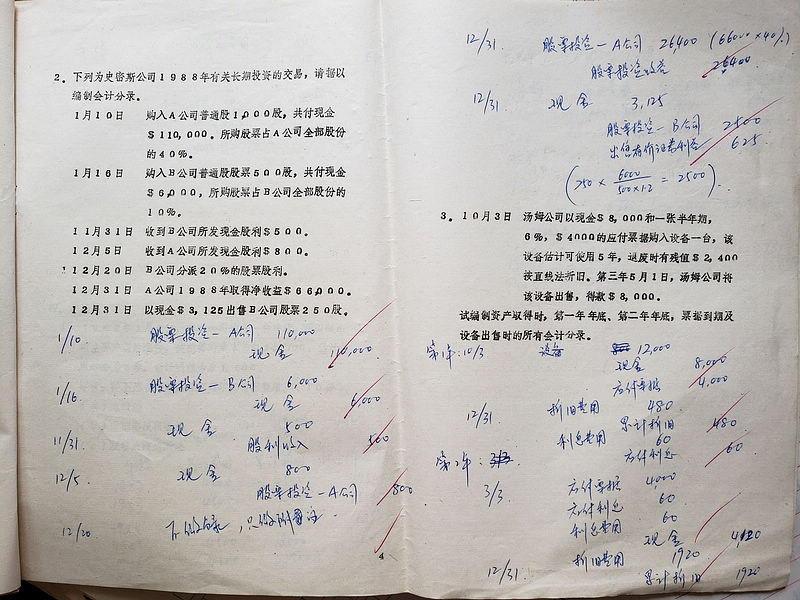 2. 下列为史密斯公司1988年有关长期投资的交易,请据以
编制会计分录。
1月10日 购入A公司普通股1,000股,共付现金
$110,000。所购股票占A公司全部股份
的40%。
1月16日 购入B公司普通股股票500股,共付现金
$6,000,所购股票占B公司全部股份的
10%。
11月31日 收到B公司所发现金股利$500。
12月5日 收到A公司所发现金股利$800。
12月20日 B公司分派20%的股票股利。
12月31日 A公司1988年取得净收益$66,000。
12月31日 以现金$3,125出售B公司股票250股。
1/10 股票投资—A公司 110,000
现金 110,000
1/16 股票投资—B公司 6,000
现金 6,000
11/31 现金 500
股利收入 500
12/5 现金 800
股票投资—A公司 800
12/20 不做分录,只做附备注
4
12/31. 股票投资—A公司 26,400 (66000×40%)
股票投资收益 26400
12/31 现金 3,125
股票投资—B公司 2500
出售有价证券利益 625
(250 × 6000/500×1.2 = 2500)
3. 10月3日 汤姆公司以现金$8,000和一张半年期,
6%,$4000的应付票据购入设备一台,该
设备估计可使用5年,退废时有残值$2,400
按直线法折旧。第三年5月1日,汤姆公司将
该设备出售,得款$8,000。
试编制资产取得时,第一年年底、第二年年底、票据到期及
设备出售时的所有会计分录。
第1年:10/3 设备 12,000
现金 8,000
应付票据 4,000
12/31 折旧费用 480
累计折旧 480
利息费用 60
应付利息 60
第2年:
3/3. 应付票据 4,000
应付利息 60
利息费用 60
现金 4,120
12/31. 折旧费用 1920
累计折旧 1920